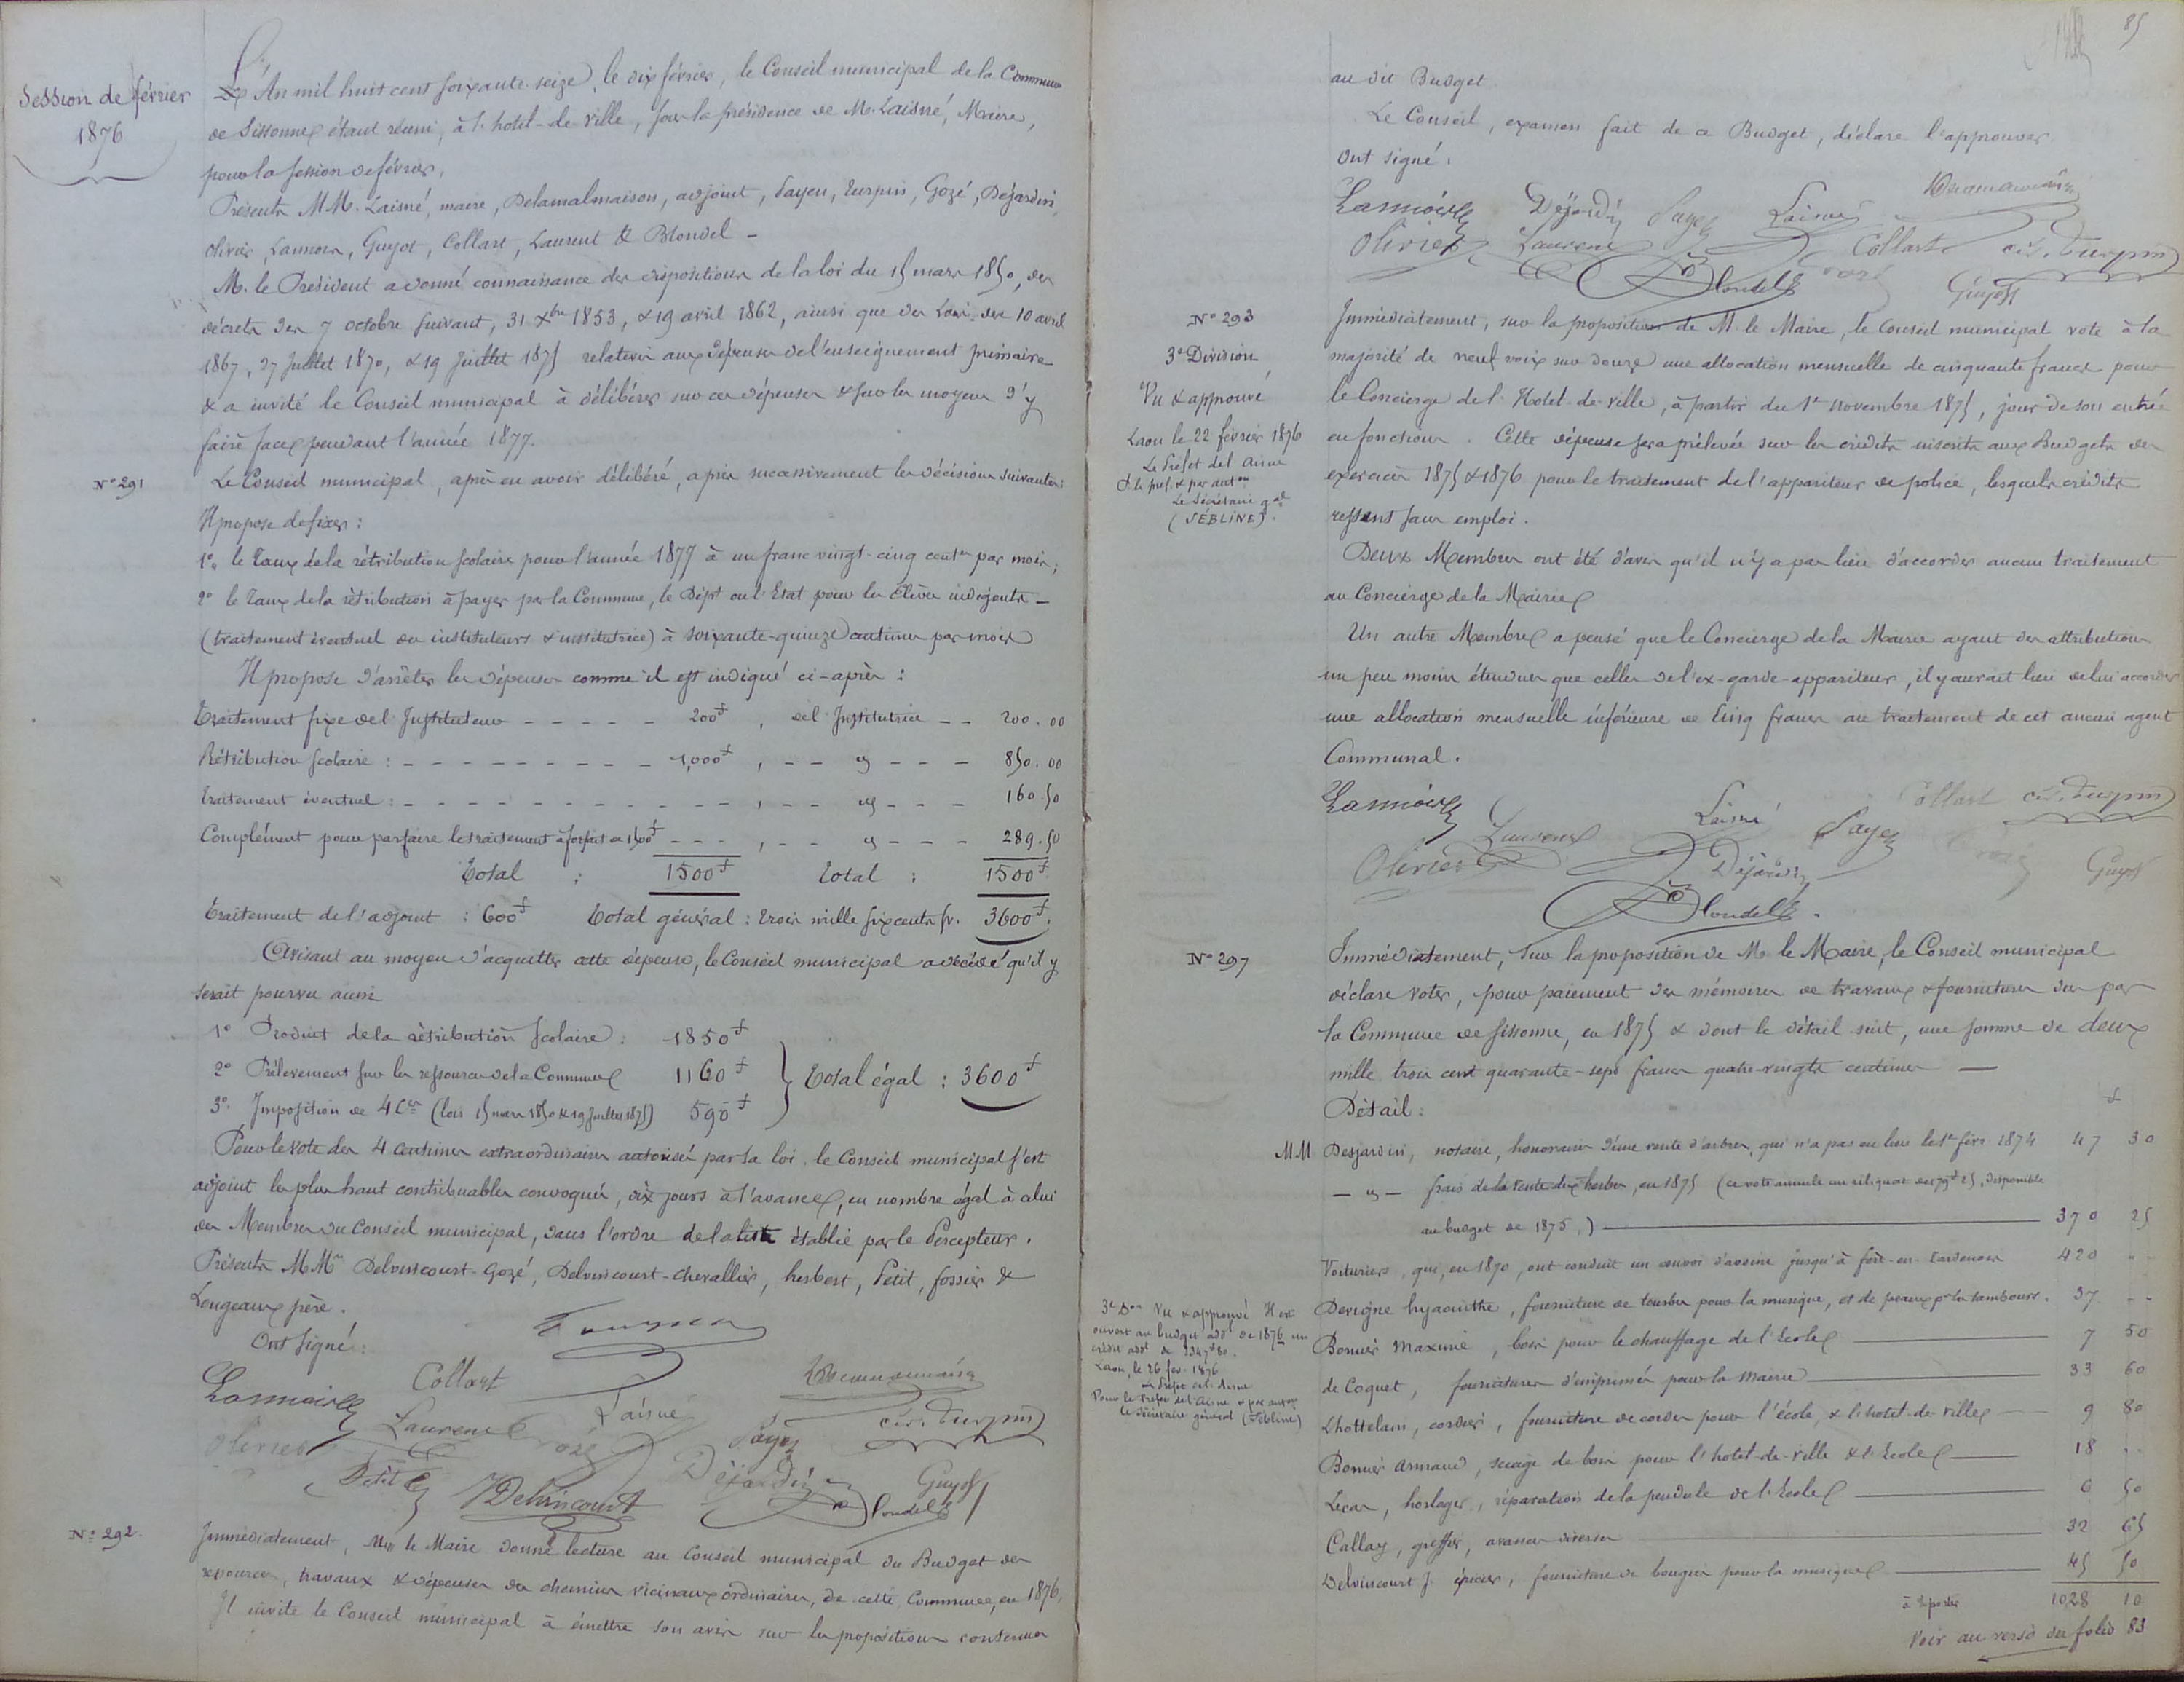 Session de février
1876
L'An mil huit cent soixante-seize, le dix février, le Conseil municipal de la Commune
de Sissonne étant réuni, à l'hotel-de-ville, sous la présidence de M. Laisné, Maire,
pour la session de février.
Présents MM. Laisné, maire, Delamalmaison, adjoint, Payen, Turpin, Gozé, Déjardin,
Olivier, Lannois, Guyot, Collart, Laurent & Blondel -
M. le Président a donné connaissance des dispositions de la loi du 15 mars 1850, des
décrets des 7 octobre suivant, 31 Xbre 1853, & 19 avril 1862, ainsi que des Lois des 10 avril
1867, 27 Juillet 1870, & 19 Juillet 1875 relatives aux dépenses de l'enseignement primaire
& a invité le Conseil municipal à délibérer sur ces dépenses & sur les moyens d'y
faire face pendant l'année 1877.
N° 291
Le Conseil municipal, après en avoir délibéré, a pris successivement les décisions suivantes:
Il propose de fixer :
1° le Taux de la rétribution scolaire pour l'année 1877 à un franc vingt-cinq cent.es par mois;
2° le Taux de la rétribution à payer par la Commune, le Dépt ou l'Etat pour les Elèves indigents -
(traitement éventuel des instituteurs & institutrice) à soixante-quinze centimes par mois
Il propose d'arrêter les dépenses comme il est indiqué ci-après :
Traitement fixe de l'Instituteur - - - - - 200f , de l'Institutrice - - 200.00
Rétribution scolaire : - - - - - - - - - 1,000f , - - " - - - 850.00
Traitement éventuel : - - - - - - - - - - , - - " - - - 160.50
Complément pour parfaire le traitement à forfait de 1500f - - - , - - " - - - 289.50
Total : 1500f Total : 1500f
Traitement de l'adjoint : 600f Total général : Trois mille six cents fr. 3600f.
Avisant au moyen d'acquitter cette dépense, le Conseil municipal a décidé qu'il y
serait pourvu ainsi
1° Produit de la rétribution scolaire : 1850f
2° Prélèvement sur les ressources de la Commune 1160f } Total égal : 3600f
3° Imposition de 4 Ces (lois 15 mars 1850 & 19 Juillet 1875) 590f
Pour le vote des 4 centimes extraordinaires autorisé par la loi, le Conseil municipal s'est
adjoint les plus haut contribuables convoqués, dix jours à l'avance, en nombre égal à celui
des Membres du Conseil municipal, dans l'ordre de la liste établie par le Percepteur.
Présents MMrs Delvincourt-Gozé, Delvincourt-Chevallier, herbert, Petit, fossier &
Lougeaux père.
Ont signé :
Lannois Collart
Laurent Laisné c.s. Turpin
Olivier Gozé Payen
Petit Delvincourt Déjardin Blondel Guyot
N° 292
Immédiatement, Mr le Maire donne lecture au Conseil municipal du Budget des
ressources, travaux & dépenses des chemins vicinaux ordinaires, de cette Commune, en 1876,
Il invite le Conseil municipal à émettre son avis sur les propositions contenues
85
au dit Budget
Le Conseil, examen fait de ce Budget, déclare l'approuver
Ont signé :
Lannois Déjardin Payen Laisné
Olivier Laurent Collart c.s. Turpin
Blondel Gozé Guyot
N° 293
3e Division
Vu & approuvé
Laon le 22 février 1876
Le Préfet de l'Aisne
P. le préf. & par auton
Le Secrétaire gal
(SÉBLINE).
Immédiatement, sur la proposition de M. le Maire, le Conseil municipal vote à la
majorité de neuf voix sur douze une allocation mensuelle de cinquante francs pour
le Concierge de l'Hotel-de-ville, à partir du 1er Novembre 1875, jour de son entrée
en fonctions. Cette dépense sera prélevée sur les crédits inscrits aux Budgets des
exercices 1875 & 1876 pour le traitement de l'appariteur de police, lesquels crédits
restent sans emploi.
Deux Membres ont été d'avis qu'il n'y a pas lieu d'accorder aucun traitement
au Concierge de la Mairie
Un autre Membre a pensé que le Concierge de la Mairie ayant des attributions
un peu moins étendues que celles de l'ex-garde-appariteur, il y aurait lieu de lui accorder
une allocation mensuelle inférieure de Cinq francs au traitement de cet ancien agent
Communal.
Lannois Laurent Laisné Payen Collart c.s. Turpin
Olivier Déjardin Gozé Guyot
Blondel
N° 297
Immédiatement, sur la proposition de M. le Maire, le Conseil municipal
déclare voter, pour paiement des mémoires de travaux & fournitures dus par
la Commune de Sissonne, en 1875 & dont le détail suit, une somme de deux
mille trois cent quarante-sept francs quatre-vingts centimes —
Détail : f
MM Desjardin, notaire, honoraires d'une vente d'arbres, qui n'a pas eu lieu le 1er févr. 1874 47 30
— " — frais de la vente des herbes, en 1875 (ce vote annule un reliquat de 79f 25, disponible
au budget de 1875.) 370 25
Voituriers, qui, en 1870, ont conduit un convoi d'avoine jusqu'à fère-en-Tardenois 420 - -
3e Don Vu & approuvé Il est
ouvert au budget addl de 1876 un
crédit addl de 2347f80.
Laon, le 26 fév. 1876
Le Préfet de l'Aisne
Pour le Préfet de l'Aisne & par auton
le Secrétaire général (Sébline)
Devigne hyacinthe, fourniture de tourbes pour la musique, et de peaux pr les tambours. 37 - -
Bonnier Maxime, bois pour le chauffage de l'Ecole 7 50
de Coquet, fournitures d'imprimés pour la Mairie 33 60
Lhottelain, cordier, fourniture de cordes pour l'école, & l'hotel-de-ville 9 80
Bonnier Armand, sciage de bois pour l'hotel-de-ville & l'Ecole 18 - -
Lecas, horloger, réparation de la pendule de l'Ecole 6 50
Callay, greffier, avances diverses 32 65
Delvincourt J. épicier, fourniture de bougies pour la musique 45 50
à Reporter 1028 10
Voir au verso du folio 83